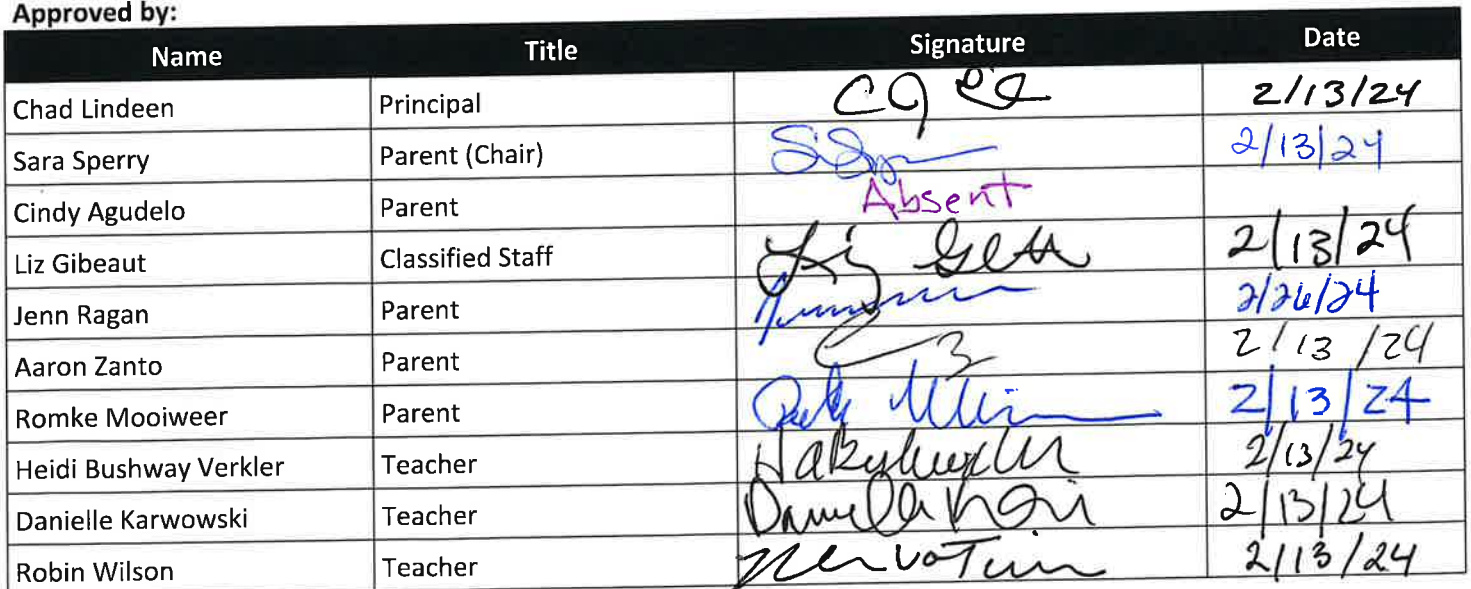 Approved by:
Name Title Signature Date
Chad Lindeen Principal 2/13/24
Sara Sperry Parent (Chair) 2/13/24
Cindy Agudelo Parent Absent
Liz Gibeaut Classified Staff Liz 2/13/24
Jenn Ragan Parent 2/26/24
Aaron Zanto Parent 2/13/24
Romke Mooiweer Parent 2/13/24
Heidi Bushway Verkler Teacher 2/13/24
Danielle Karwowski Teacher Danielle 2/13/24
Robin Wilson Teacher 2/13/24